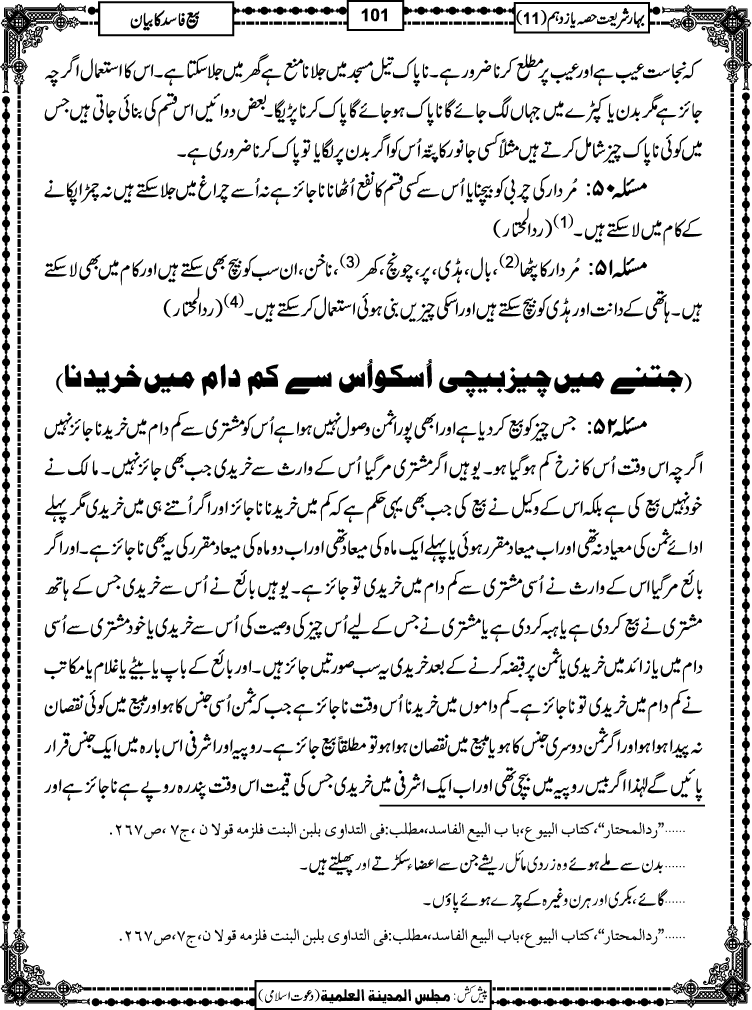 بہارِ شریعت حصہ یازدہم (11)
101
بیع فاسد کا بیان
کہ نجاست عیب ہے اور عیب پر مطلع کرنا ضرور ہے۔ ناپاک تیل مسجد میں جلانا منع ہے گھر میں جلا سکتا ہے۔ اس کا استعمال اگرچہ
جائز ہے مگر بدن یا کپڑے میں جہاں لگ جائے گا ناپاک ہو جائے گا پاک کرنا پڑیگا۔ بعض دوائیں اس قسم کی بنائی جاتی ہیں جس
میں کوئی ناپاک چیز شامل کرتے ہیں مثلاً کسی جانور کا پِتّہ اُس کو اگر بدن پر لگایا تو پاک کرنا ضروری ہے۔
مسئلہ ۵۰: مُردار کی چربی کو بیچنا یا اُس سے کسی قسم کا نفع اُٹھانا ناجائز ہے نہ اُسے چراغ میں جلا سکتے ہیں نہ چمڑا پکانے
کے کام میں لا سکتے ہیں۔(1) (ردالمحتار)
مسئلہ ۵۱: مُردار کا پٹھا(2)، بال، ہڈی، پر، چونچ، کھر(3)، ناخن، ان سب کو بیچ بھی سکتے ہیں اور کام میں بھی لا سکتے
ہیں۔ ہاتھی کے دانت اور ہڈی کو بیچ سکتے ہیں اور اسکی چیزیں بنی ہوئی استعمال کر سکتے ہیں۔(4) (ردالمحتار)
(جتنے میں چیز بیچی اُسکو اُس سے کم دام میں خریدنا)
مسئلہ ۵۲: جس چیز کو بیع کر دیا ہے اور ابھی پورا ثمن وصول نہیں ہوا ہے اُس کو مشتری سے کم دام میں خریدنا جائز نہیں
اگرچہ اس وقت اُس کا نرخ کم ہو گیا ہو۔ یوہیں اگر مشتری مر گیا اُس کے وارث سے خریدی جب بھی جائز نہیں۔ مالک نے
خود نہیں بیع کی ہے بلکہ اس کے وکیل نے بیع کی جب بھی یہی حکم ہے کہ کم میں خریدنا ناجائز اور اگر اُتنے ہی میں خریدی مگر پہلے
ادائے ثمن کی معیاد نہ تھی اور اب میعاد مقرر ہوئی یا پہلے ایک ماہ کی میعاد تھی اور اب دو ماہ کی میعاد مقرر کی یہ بھی ناجائز ہے۔ اور اگر
بائع مر گیا اس کے وارث نے اُسی مشتری سے کم دام میں خریدی تو جائز ہے۔ یوہیں بائع نے اُس سے خریدی جس کے ہاتھ
مشتری نے بیع کر دی ہے یا ہبہ کر دی ہے یا مشتری نے جس کے لیے اُس چیز کی وصیت کی اُس سے خریدی یا خود مشتری سے اُسی
دام میں یا زائد میں خریدی یا ثمن پر قبضہ کرنے کے بعد خریدی یہ سب صورتیں جائز ہیں۔ اور بائع کے باپ یا بیٹے یا غلام یا مکاتب
نے کم دام میں خریدی تو ناجائز ہے۔ کم داموں میں خریدنا اُس وقت ناجائز ہے جب کہ ثمن اُسی جنس کا ہو اور مبیع میں کوئی نقصان
نہ پیدا ہوا ہو اور اگر ثمن دوسری جنس کا ہو یا مبیع میں نقصان ہوا ہو تو مطلقاً بیع جائز ہے۔ روپیہ اور اشرفی اس بارہ میں ایک جنس قرار
پائیں گے لہٰذا اگر بیس روپیہ میں بیچی تھی اور اب ایک اشرفی میں خریدی جس کی قیمت اس وقت پندرہ روپے ہے ناجائز ہے اور
......”ردالمحتار“، کتاب البیوع، باب البیع الفاسد، مطلب: فی التداوی بلبن البنت فلزمه قولان، ج۷، ص۲۶۷.
......بدن سے ملے ہوئے وہ زردی مائل ریشے جن سے اعضاء سکڑتے اور پھیلتے ہیں۔
......گائے، بکری اور ہرن وغیرہ کے چِرے ہوئے پاؤں۔
......”ردالمحتار“، کتاب البیوع، باب البیع الفاسد، مطلب: فی التداوی بلبن البنت فلزمه قولان، ج۷، ص۲۶۷.
پیش کش: مجلس المدینة العلمیة (دعوت اسلامی)